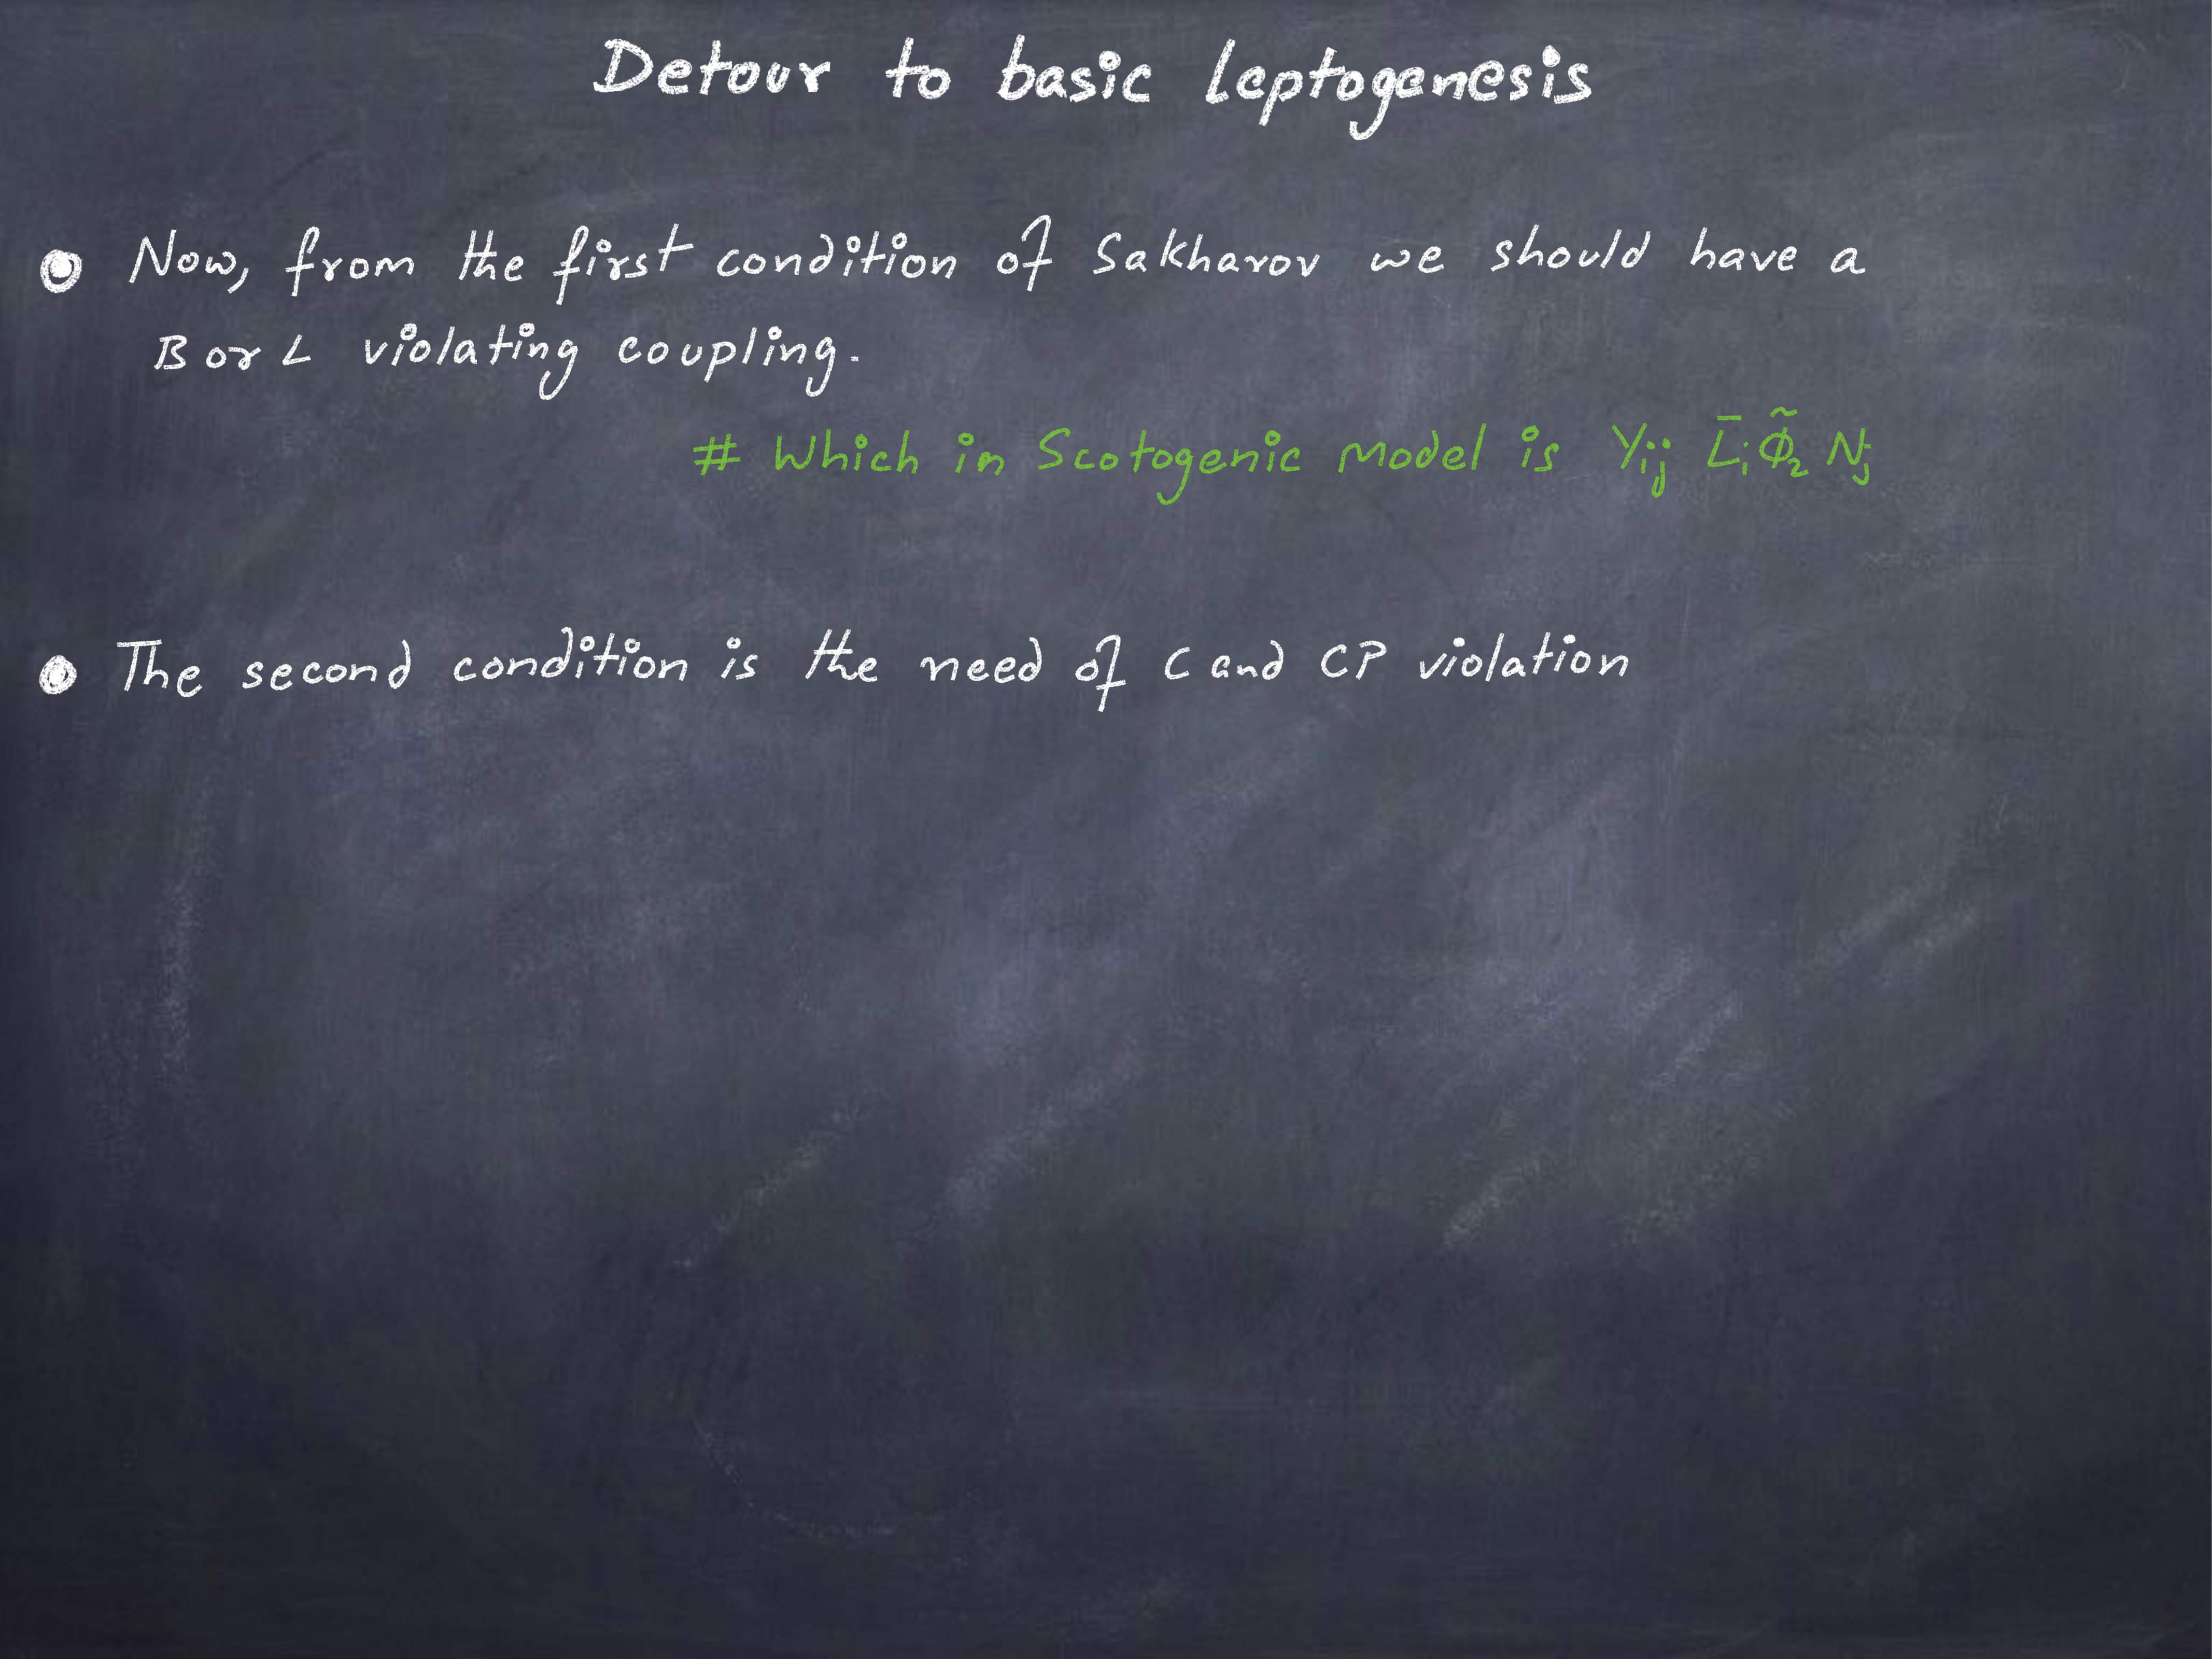 Detour to basic leptogenesis
Now, from the first condition of Sakharov we should have a
B or L violating coupling.
# Which in Scotogenic Model is Yᵢⱼ L̄ᵢ Φ̃₂ Nⱼ
The second condition is the need of C and CP violation